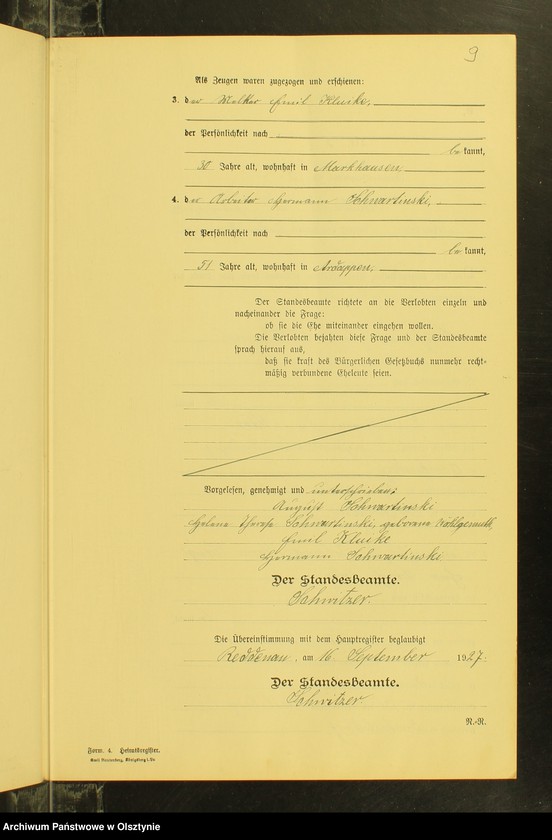 9
Als Zeugen waren zugezogen und erschienen:
3. der Melker Emil Kluske,
der Persönlichkeit nach
bekannt,
30 Jahre alt, wohnhaft in Markhausen,
4. der Arbeiter Hermann Schwartinski,
der Persönlichkeit nach
bekannt,
51 Jahre alt, wohnhaft in
Der Standesbeamte richtete an die Verlobten einzeln und
nacheinander die Frage:
ob sie die Ehe miteinander eingehen wollen.
Die Verlobten bejahten diese Frage und der Standesbeamte
sprach hierauf aus,
daß sie kraft des Bürgerlichen Gesetzbuchs nunmehr recht-
mäßig verbundene Eheleute seien.
Vorgelesen, genehmigt und unterschrieben:
August Schwartinski
Helene Therese Schwartinski, geborene Wohlgemuth,
Emil Kluske
Hermann Schwartinski.
Der Standesbeamte.
Schwitzer.
Die Übereinstimmung mit dem Hauptregister beglaubigt
Reddenau, am 16 September 1927.
Der Standesbeamte.
Schwitzer
N.-R.
Form. 4. Heiratsregister.
Königsberg i. Pr.
Archiwum Państwowe w Olsztynie